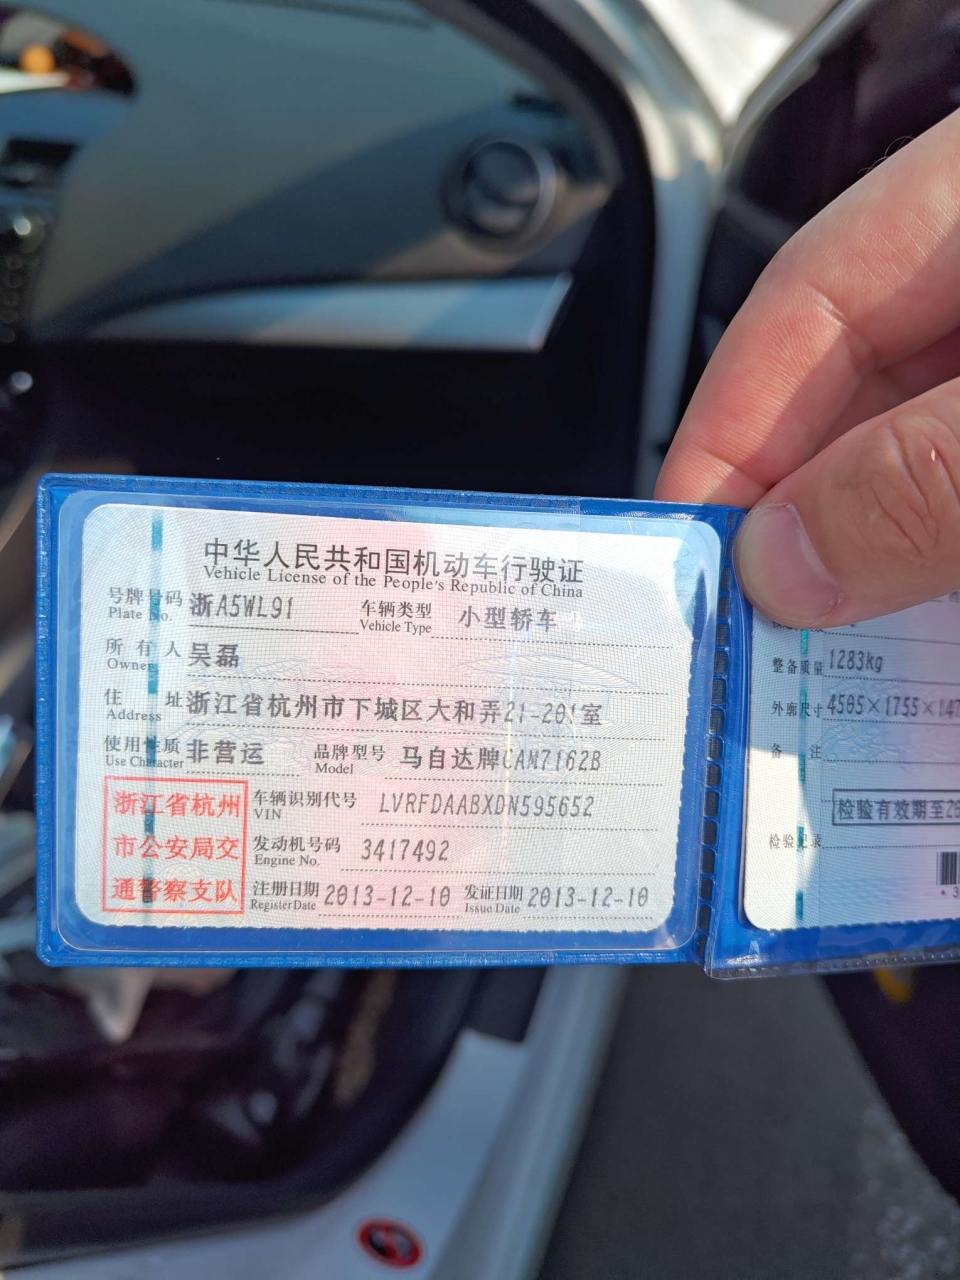 中华人民共和国机动车行驶证
Vehicle License of the People's Republic of China
号牌号码 浙A5WL91 车辆类型 小型轿车
Plate No. Vehicle Type
所有人 吴磊
Owner
住址 浙江省杭州市下城区大和弄21-201室
Address
使用性质 非营运 品牌型号 马自达牌CAM7162B
Use Character Model
浙江省杭州
市公安局交
通警察支队
车辆识别代号 LVRFDAABXDN595652
VIN
发动机号码 3417492
Engine No.
注册日期 2013-12-10 发证日期 2013-12-10
Register Date Issue Date
整备质量 1283kg
外廓尺寸 4585×1755×147
备注
检验有效期至20
检验记录